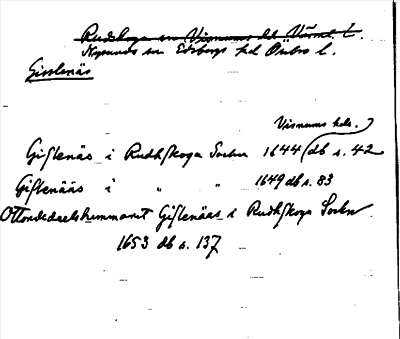 Rudskoga sn Visnums hd Värml. l.
Nysunds sn Edsbergs hd Örebro l.
Gisslenäs
Visnums hds.
Giſlenäs i Rudhſkoga Sochn 1644 (db s. 42
Giſlenääs i " " 1649 db s. 83
Ottondedaelshemmanet Giſlenääs i Rudhſkoga Sochn
1653 db s. 137